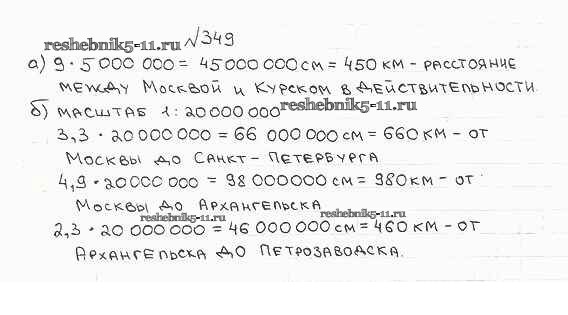 №349
reshebnik5-11.ru
а) 9 · 5 000 000 = 45 000 000 см = 450 км - расстояние
между Москвой и Курском в действительности.
б) масштаб 1 : 20 000 000 reshebnik5-11.ru
3,3 · 20 000 000 = 66 000 000 см = 660 км - от
Москвы до Санкт-Петербурга
4,9 · 20 000 000 = 98 000 000 см = 980 км - от
Москвы до Архангельска
reshebnik5-11.ru reshebnik5-11.ru
2,3 · 20 000 000 = 46 000 000 см = 460 км - от
Архангельска до Петрозаводска.